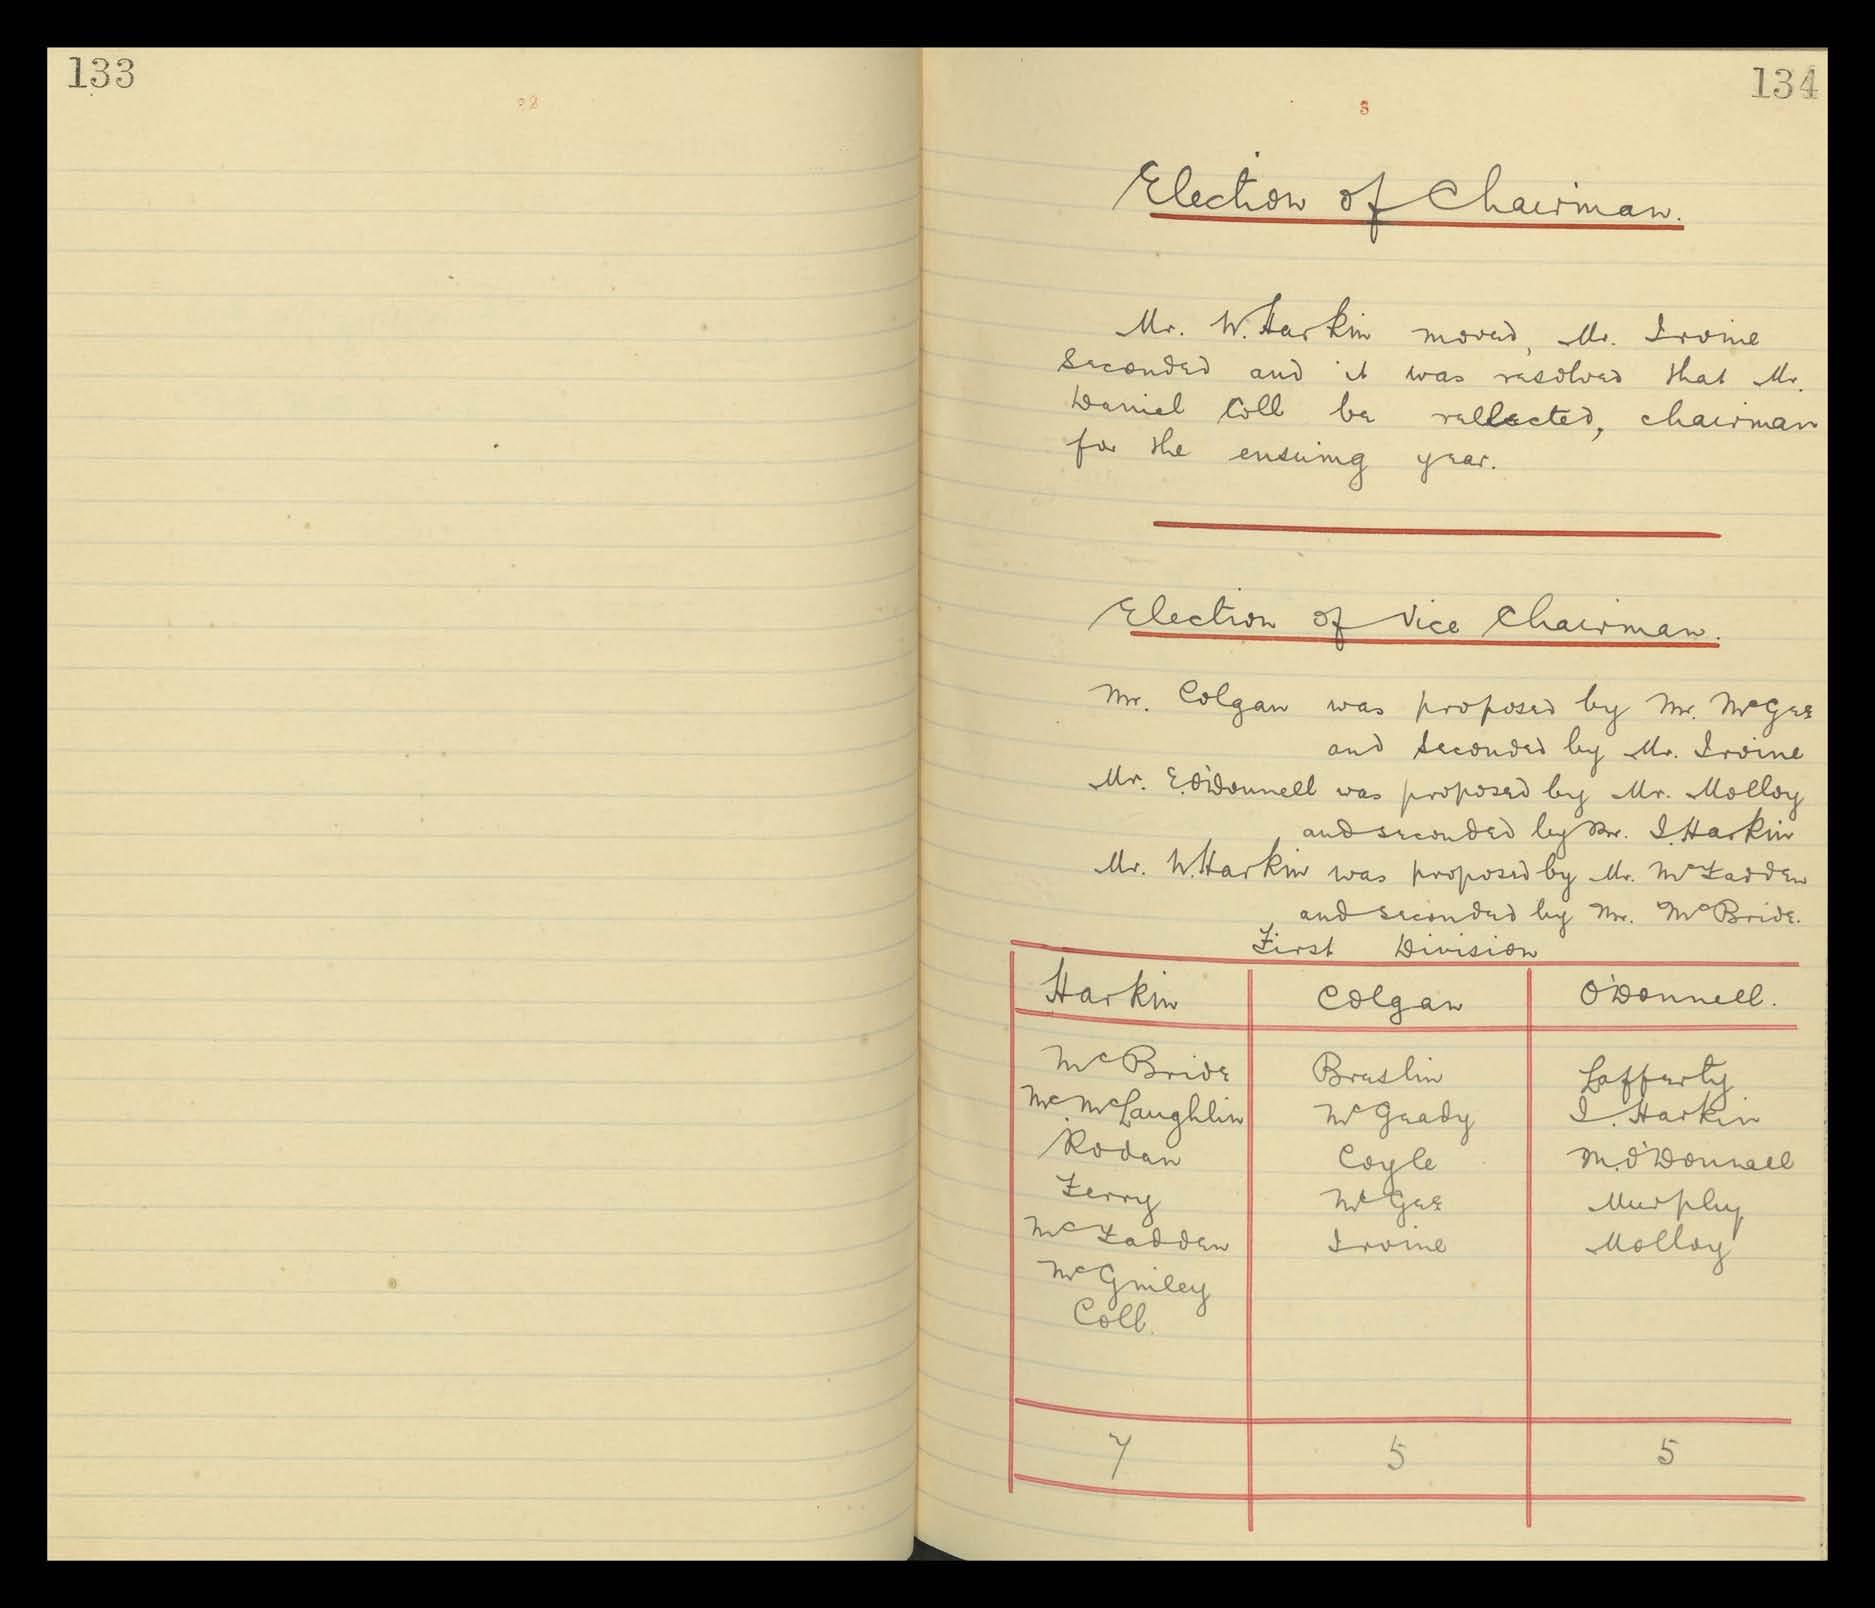 133
134
3
Election of Chairman.
Mr. W. Harkin moved, Mr. Irvine
seconded and it was resolved that Mr.
Daniel Coll be rellected, chairman
for the ensuing year.
Election of Vice Chairman.
Mr. Colgan was proposed by Mr. McGee
and seconded by Mr. Irvine
Mr. E. O'Donnell was proposed by Mr. Molloy
and seconded by Mr. I. Harkin
Mr. W. Harkin was proposed by Mr. McFadden
and seconded by Mr. McBride.
First Division
Harkin Colgan O'Donnell.
McBride Breslin Lafferty
McLaughlin McGeady I. Harkin
Rodan Coyle M. O'Donnell
Ferry McGee Murphy
McFadden Irvine Molloy
McGinley
Coll.
7 5 5